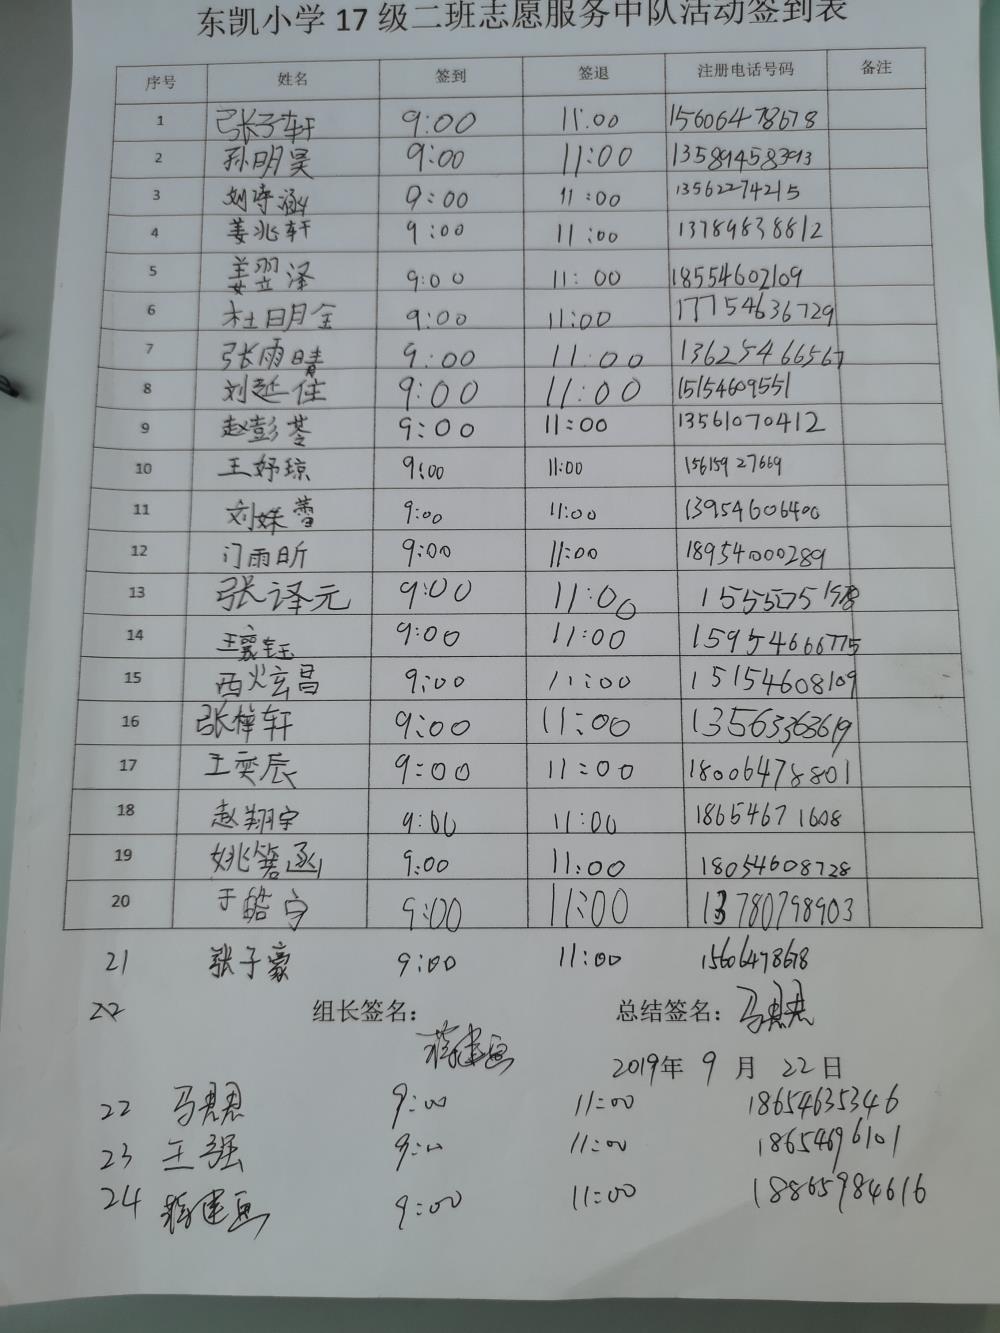 东凯小学17级二班志愿服务中队活动签到表
序号 姓名 签到 签退 注册电话号码 备注
1 张子轩 9:00 11:00 15606478678
2 孙明昊 9:00 11:00 13589458393
3 刘学涵 9:00 11:00 13562274215
4 姜兆轩 9:00 11:00 13789838812
5 姜翌泽 9:00 11:00 18554602109
6 杜明金 9:00 11:00 17754636729
7 张雨晴 9:00 11:00 13625466567
8 刘延佳 9:00 11:00 15154609551
9 赵彭苓 9:00 11:00 13561070412
10 王妤琼 9:00 11:00 15615927669
11 刘姝蕾 9:00 11:00 13954606400
12 门雨昕 9:00 11:00 18954000289
13 张译元 9:00 11:00
14 王襄钰 9:00 11:00 15954666775
15 西炫昌 9:00 11:00 15154608109
16 张梓轩 9:00 11:00 13563363619
17 王奕辰 9:00 11:00 18006478801
18 赵翔宇 9:00 11:00 18654671608
19 姚箬函 9:00 11:00 18054608728
20 于皓宁 9:00 11:00 13780798903
21 张子豪 9:00 11:00 15606478678
22 组长签名: 总结签名: 马君君
2019年 9 月 22 日
22 马君君 9:00 11:00 18654635346
23 王强 9:00 11:00 1865496101
24 9:00 11:00 18865984616